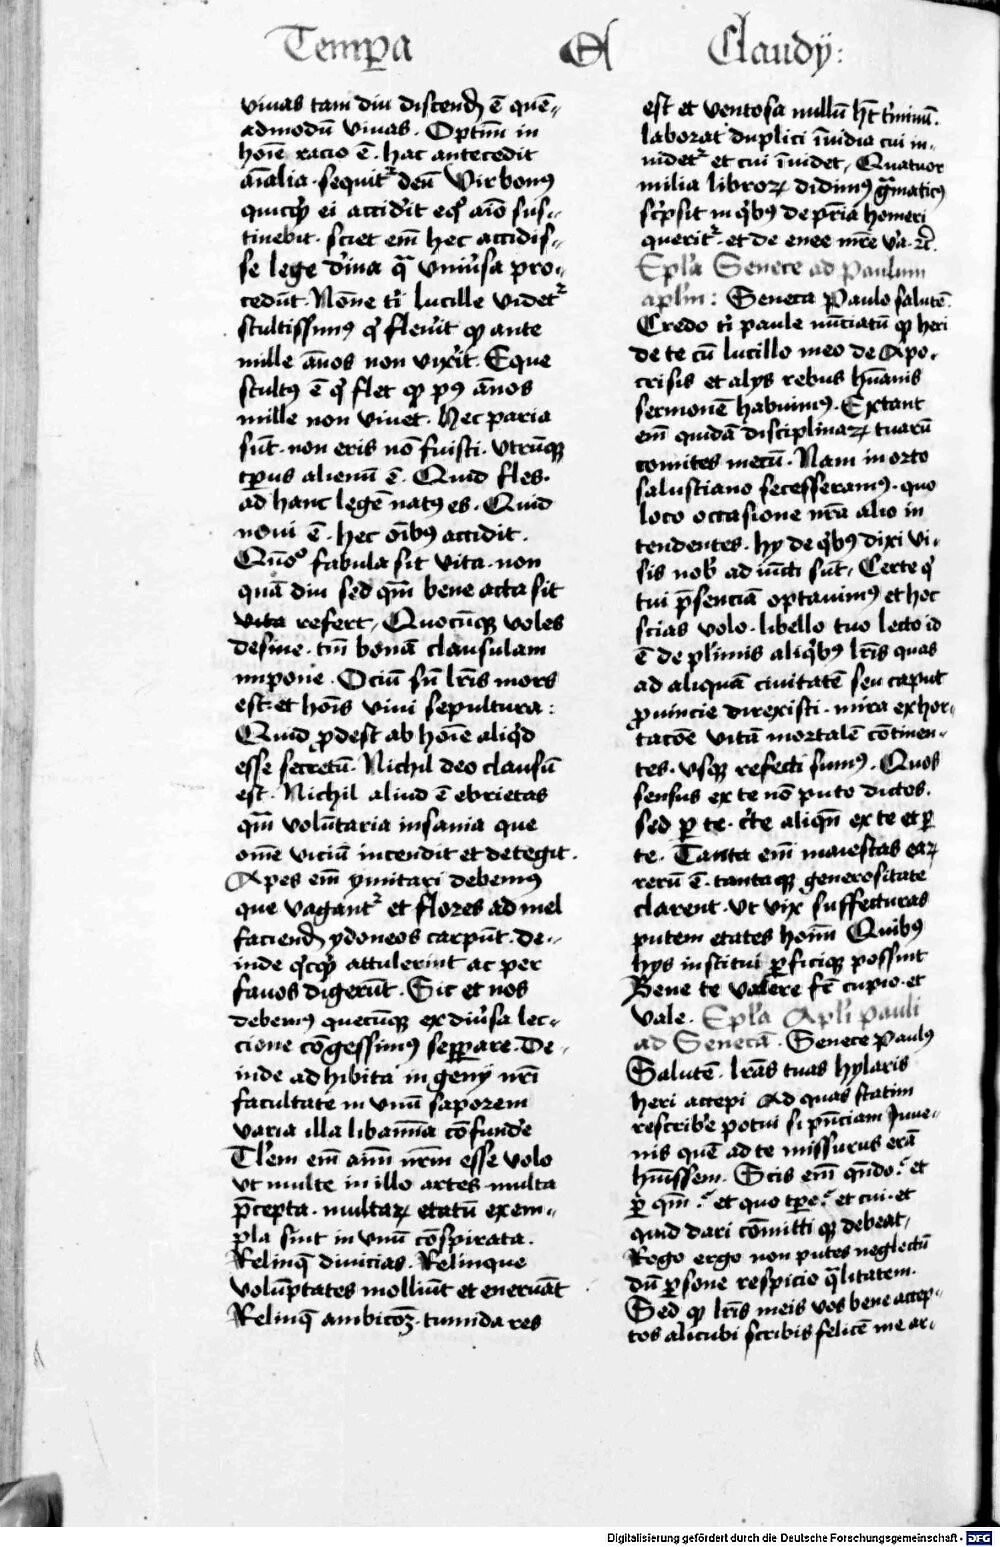 Tempa Et Claudÿ:
vivas tam diu discend̄ ē quē-
admodū vivas. Optīm in
hoīe racio ē. hac antecedit
aīalia. sequit̄ deū Vir bonꝰ
quicq̄ ei acciderit eq̄ aīo sus-
tinebit. sciet em̄ hec accidis-
se lege d'ina qua vniu'sa pro-
cedūt. Nōne t' lucille videt̄
stultissimꝰ q̇ fleuit qꝫ ante
mille ānos non vixit. Eque
stultꝰ ē q̇ flet qꝫ pꝰ ānos
mille non vivet. Hec paria
sūt. non eris nō fuisti. vtrūqꝫ
tp̄us alienū ē. Quid fles.
ad hanc legē natꝰ es. Quid
noui ē. hec oībꝰ accidit.
Quō fabula sit vita. non
quā diu sed qm̄ bene acta sit
vita refert. Quocūqꝫ voles
desine. tm̄ bonā clausulam
impone. Ociū sn̄ lr̄is mors
est et hoīs viui sepultura:
Quid ꝓdest ab hoīe aliq̇d
esse secretū. Nichil deo clausū
est. Nichil aliud ē ebrietas
qm̄ volūtaria insania que
om̄e viciū incendit et detegit.
Apes em̄ ymitari debemꝰ
que vagant̄ et flores ad mel
faciend̄ ydoneos carpūt. de-
inde q̇cq̇ attulerint ac per
favos digerūt. Sic et nos
debemꝰ quecūqꝫ ex diu'sa lec-
cione cōgessimꝰ seꝑare. De-
inde adhibita ingenÿ nr̄i
facultate in vnū saporem
varia illa libamīa cōfunde
Tl'em em̄ aīm nr̄m esse volo
vt multe in illo artes multa
p̄cepta. multaꝝ etatū exem-
pla sint in vnū cōspirata.
Relinq̄ diuicias. Relinque
volūptates molliūt et eneruāt
Relinq̄ ambicōꝫ. tumida res
est et ventosa nullū hꝫ t'minū.
laborat duplici īuidia cui in-
uidet̄ et cui īuidet. Quatuor
milia libroꝝ didimꝰ gramaticꝰ
sc'psit in q̇bꝰ de pr̄ia homeri
querit̄. et de enee mr̄e v'a. ꝛc̄.
Epl'a Senece ad Paulum
apl'm: Seneca Paulo salutē.
Credo t' paule nūciatū qꝫ heri
de te cū lucillo meo de Apo-
crisis et alÿs rebus hūanis
sermonē habuimꝰ. Extant
em̄ quidā disciplinaꝝ tuarū
comites mecū. Nam in orto
salustiano secesseramꝰ. quo
loco occasione nr̄a alio in
tendentes. hy de q̇bꝰ dixi vi-
sis nob' adiūcti sūt. Certe q̇
tui p̄senciā optauimꝰ et hoc
scias volo. libello tuo lecto id
ē de pl'imis aliq̇bꝰ lr̄is quas
ad aliquā ciuitatē seu caput
ꝓuincie direxisti. mira exhor-
tacōe vitā mortalē cōtinen-
tes. vsqꝫ refecti sumꝰ. Quos
sensus ex te nō puto dictos.
sed ꝑ te. c'te aliqn̄ ex te et ꝑ
te. Tanta em̄ maiestas eaꝝ
rerū ē. tantaqꝫ generositate
clarent. vt vix suffecturas
putem etates hoīm Quibꝰ
hÿs institui ꝑficiqꝫ possint
Bene te valere fr̄ cupio. et
vale. Epl'a Apl'i pauli
ad Senecā. Senece Paulꝰ
Salutē. lr̄as tuas hylaris
heri accepi Ad quas statim
rescribe potui si p̄nciam Juue-
nis quē ad te missurus erā
hūissem. Scis em̄ qn̄do. et
ꝑ qm̄. et quo tp̄e. et cui. et
quid dari cōmitti qꝫ debeat.
Rogo ergo non putes neglectū
dū ꝑsone respicio q̄litatem.
Sed qꝫ lr̄is meis vos bene accep-
tos alicubi scribis felicē me ar-
Digitalisierung gefördert durch die Deutsche Forschungsgemeinschaft - DFG